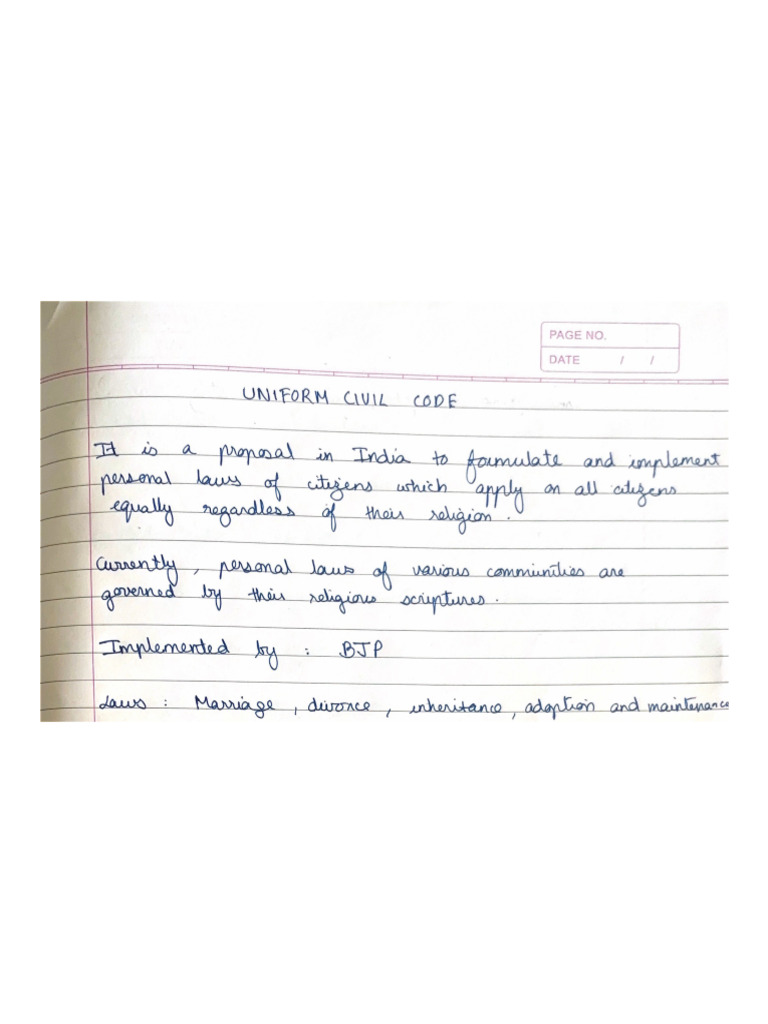 PAGE NO.
DATE / /
UNIFORM CIVIL CODE
It is a proposal in India to formulate and implement
personal laws of citizens which apply on all citizens
equally regardless of their religion.
Currently, personal laws of various communities are
governed by their religious scriptures.
Implemented by : BJP
Laws : Marriage, divorce, inheritance, adoption and maintenance